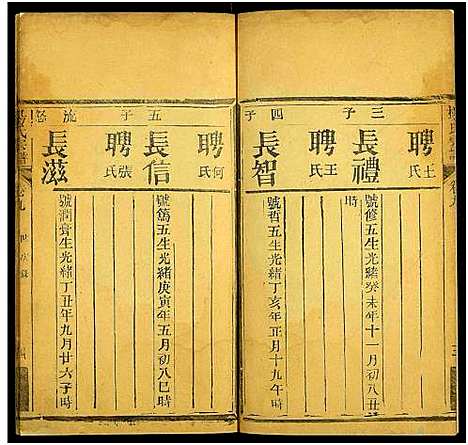 三子
長禮
聘王氏
號修五生光緒癸未年十一月初八丑時
四子
長智
聘王氏
號哲五生光緒丁亥年正月十九午時
五子
長信
聘何氏
號篤五生光緒庚寅年五月初八巳時
長滋
聘張氏
號潤齋生光緒丁丑年九月廿六子時
楊氏宗譜
卷九